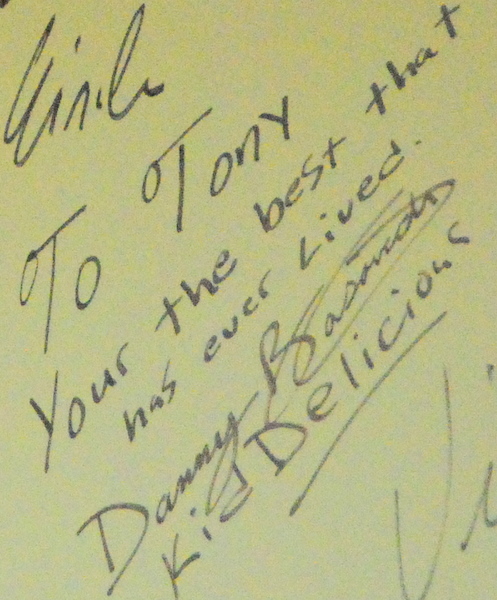 To Tony
Your the best that
has ever Lived.
Danny Basavich
Kid Delicious